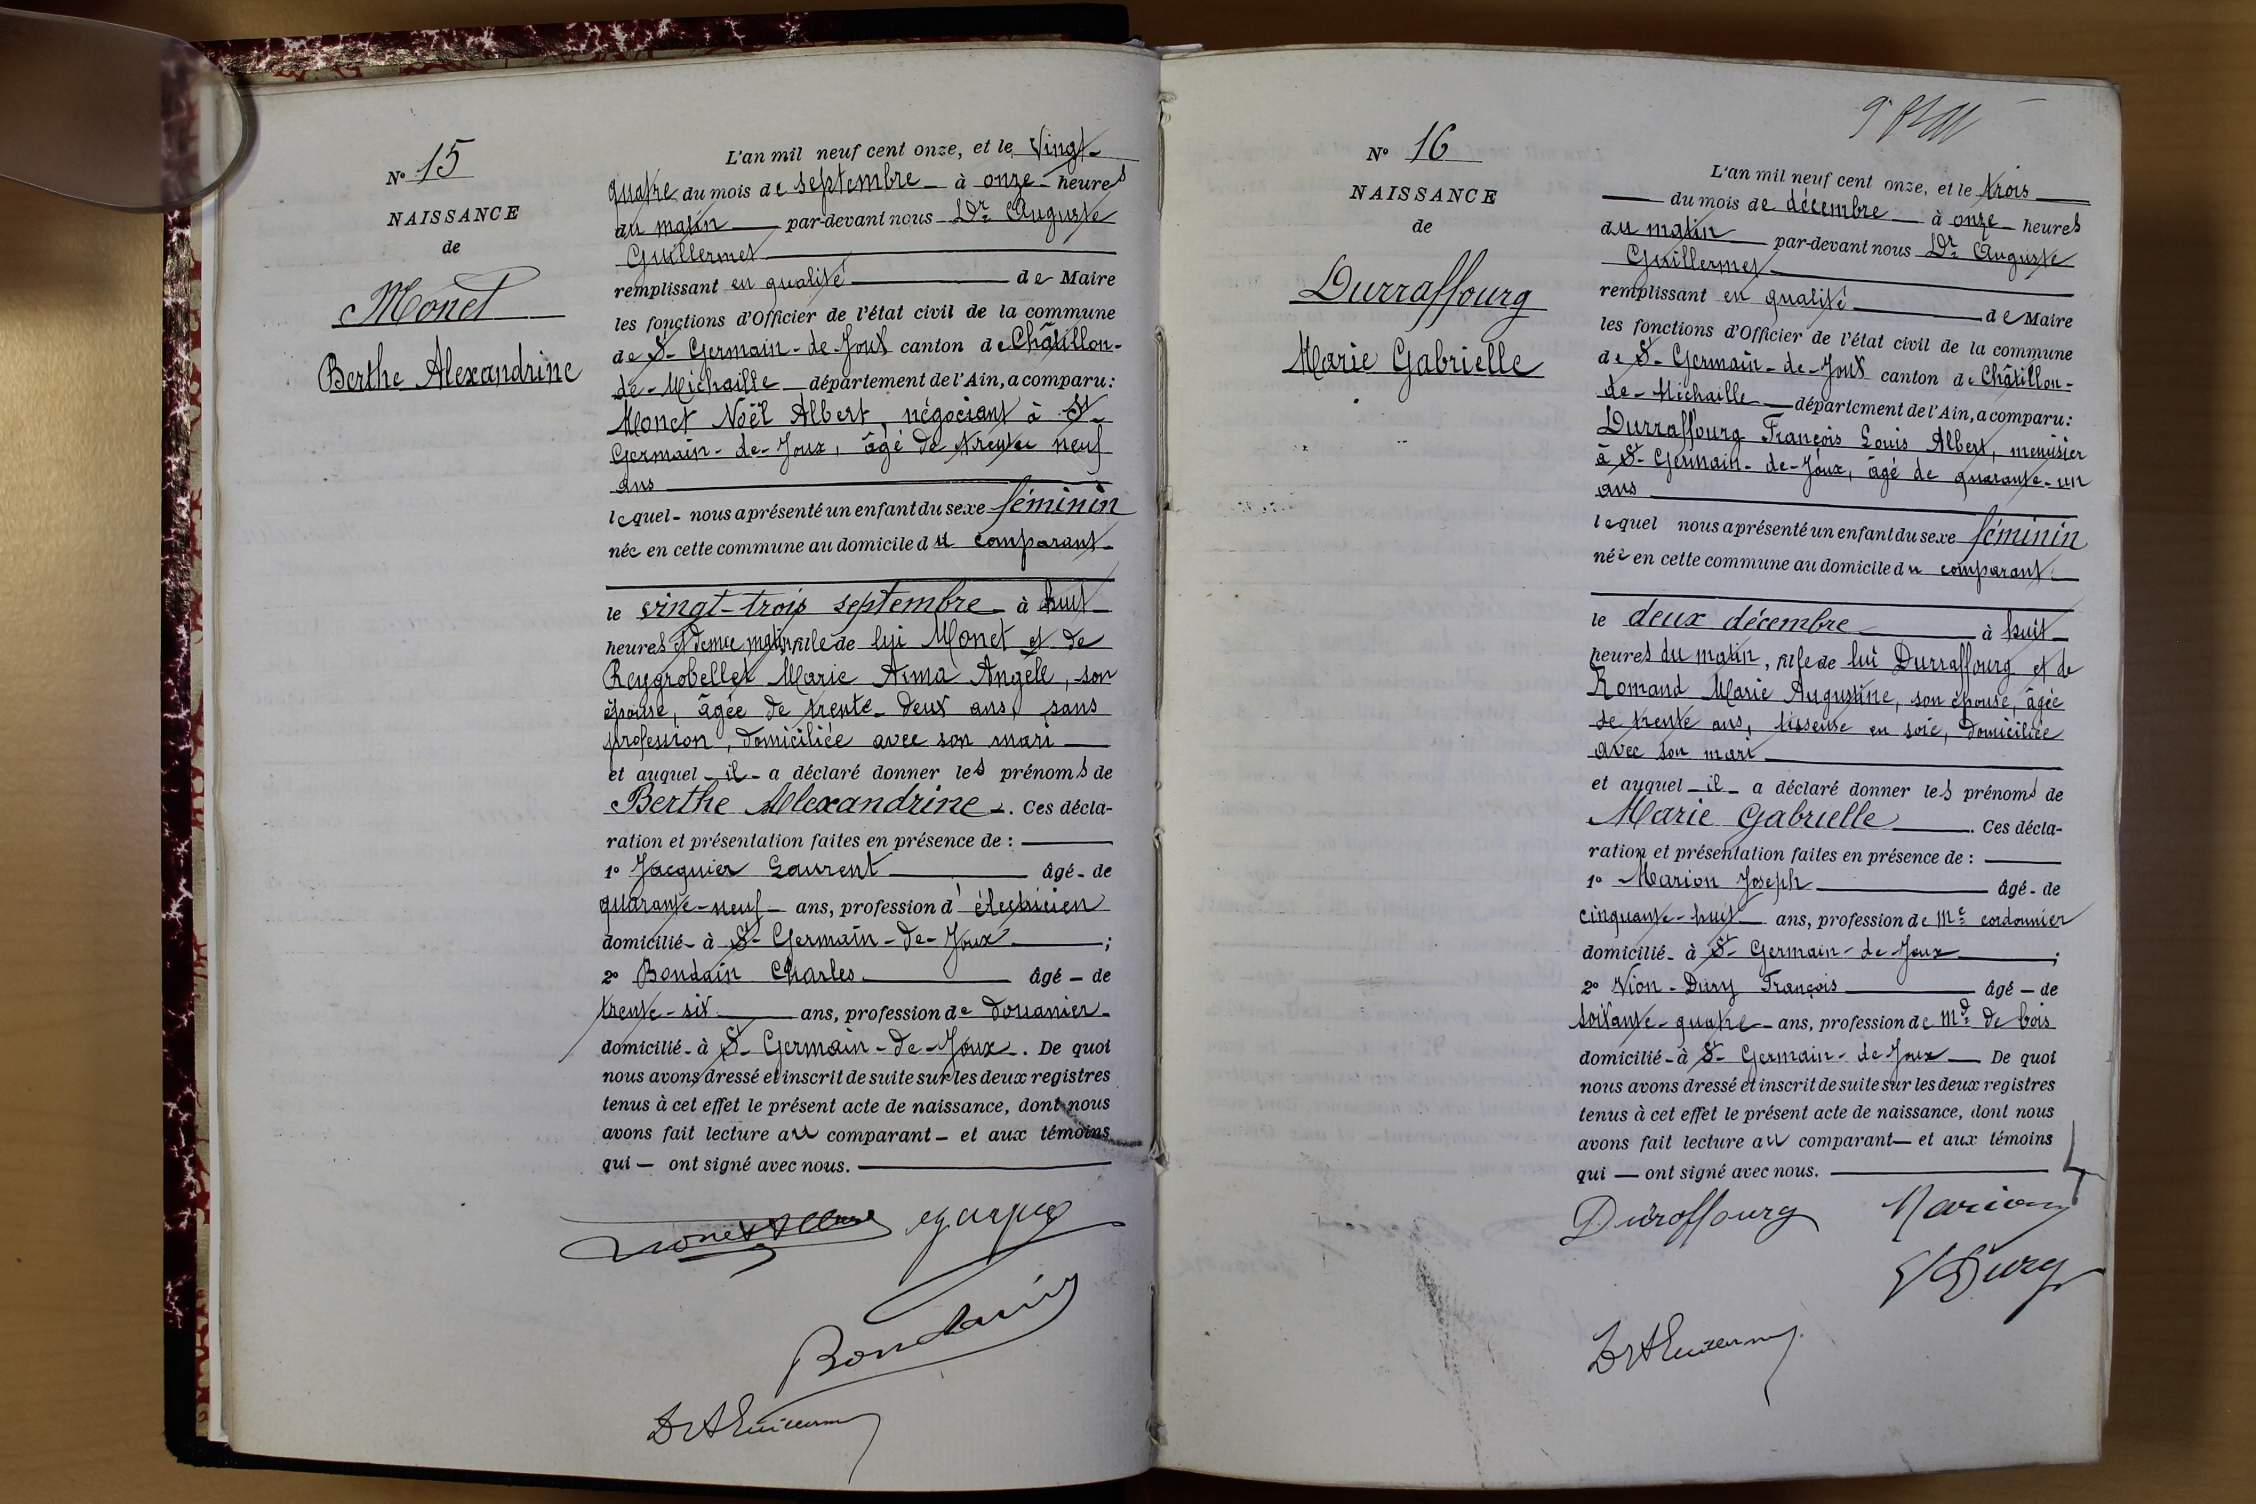 N° 15
NAISSANCE
de
Monet
Berthe Alexandrine
L'an mil neuf cent onze, et le Vingt-
quatre du mois de septembre à onze heures
du matin par-devant nous Dr Auguste
Guillermet
remplissant en qualité de Maire
les fonctions d'Officier de l'état civil de la commune
de St-Germain-de-Joux canton de Châtillon-
de-Michaille département de l'Ain, a comparu:
Monet Noël Albert, négociant à St-
Germain-de-Joux, âgé de trente neuf
ans
lequel nous a présenté un enfant du sexe féminin
née en cette commune au domicile du comparant
le vingt-trois septembre à huit
heures et demie matin, fille de lui Monet et de
Reygrobellet Marie Anna Angèle, son
épouse, âgée de trente-deux ans, sans
profession, domiciliée avec son mari
et auquel il a déclaré donner les prénoms de
Berthe Alexandrine. Ces décla-
ration et présentation faites en présence de :
1° Jacquier Laurent âgé de
quarante-neuf ans, profession d'électricien
domicilié à St-Germain-de-Joux ;
2° Bondain Charles âgé de
trente-six ans, profession de douanier
domicilié à St-Germain-de-Joux. De quoi
nous avons dressé et inscrit de suite sur les deux registres
tenus à cet effet le présent acte de naissance, dont nous
avons fait lecture au comparant et aux témoins
qui ont signé avec nous.
Bondain
Dr A Guillermet
N° 16
NAISSANCE
de
Durraffourg
Marie Gabrielle
L'an mil neuf cent onze, et le trois
du mois de décembre à onze heures
du matin par-devant nous Dr Auguste
Guillermet
remplissant en qualité de Maire
les fonctions d'Officier de l'état civil de la commune
de St-Germain-de-Joux canton de Châtillon-
de-Michaille département de l'Ain, a comparu:
Durraffourg François Louis Albert, menuisier
à St-Germain-de-Joux, âgé de quarante-un
ans
lequel nous a présenté un enfant du sexe féminin
née en cette commune au domicile du comparant
le deux décembre à huit
heures du matin, fille de lui Durraffourg et de
Romand Marie Augustine, son épouse, âgée
de trente ans, tisseuse en soie, domiciliée
avec son mari
et auquel il a déclaré donner les prénoms de
Marie Gabrielle. Ces décla-
ration et présentation faites en présence de :
1° Marion Joseph âgé de
cinquante-huit ans, profession de Me cordonnier
domicilié à St-Germain-de-Joux ;
2° Nion-Dury François âgé de
soixante-quatre ans, profession de Md de bois
domicilié à St-Germain-de-Joux De quoi
nous avons dressé et inscrit de suite sur les deux registres
tenus à cet effet le présent acte de naissance, dont nous
avons fait lecture au comparant et aux témoins
qui ont signé avec nous.
Duroffourg Marion
Dury
Dr A Guillermet